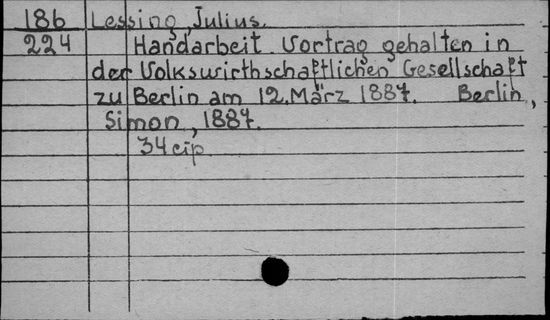 186 Lessing, Julius.
224 Handarbeit. Vortrag gehalten in
der Volkswirthschaftlichen Gesellschaft
zu Berlin am 12. März 1887. Berlin,
Simon, 1887.
34 cip.